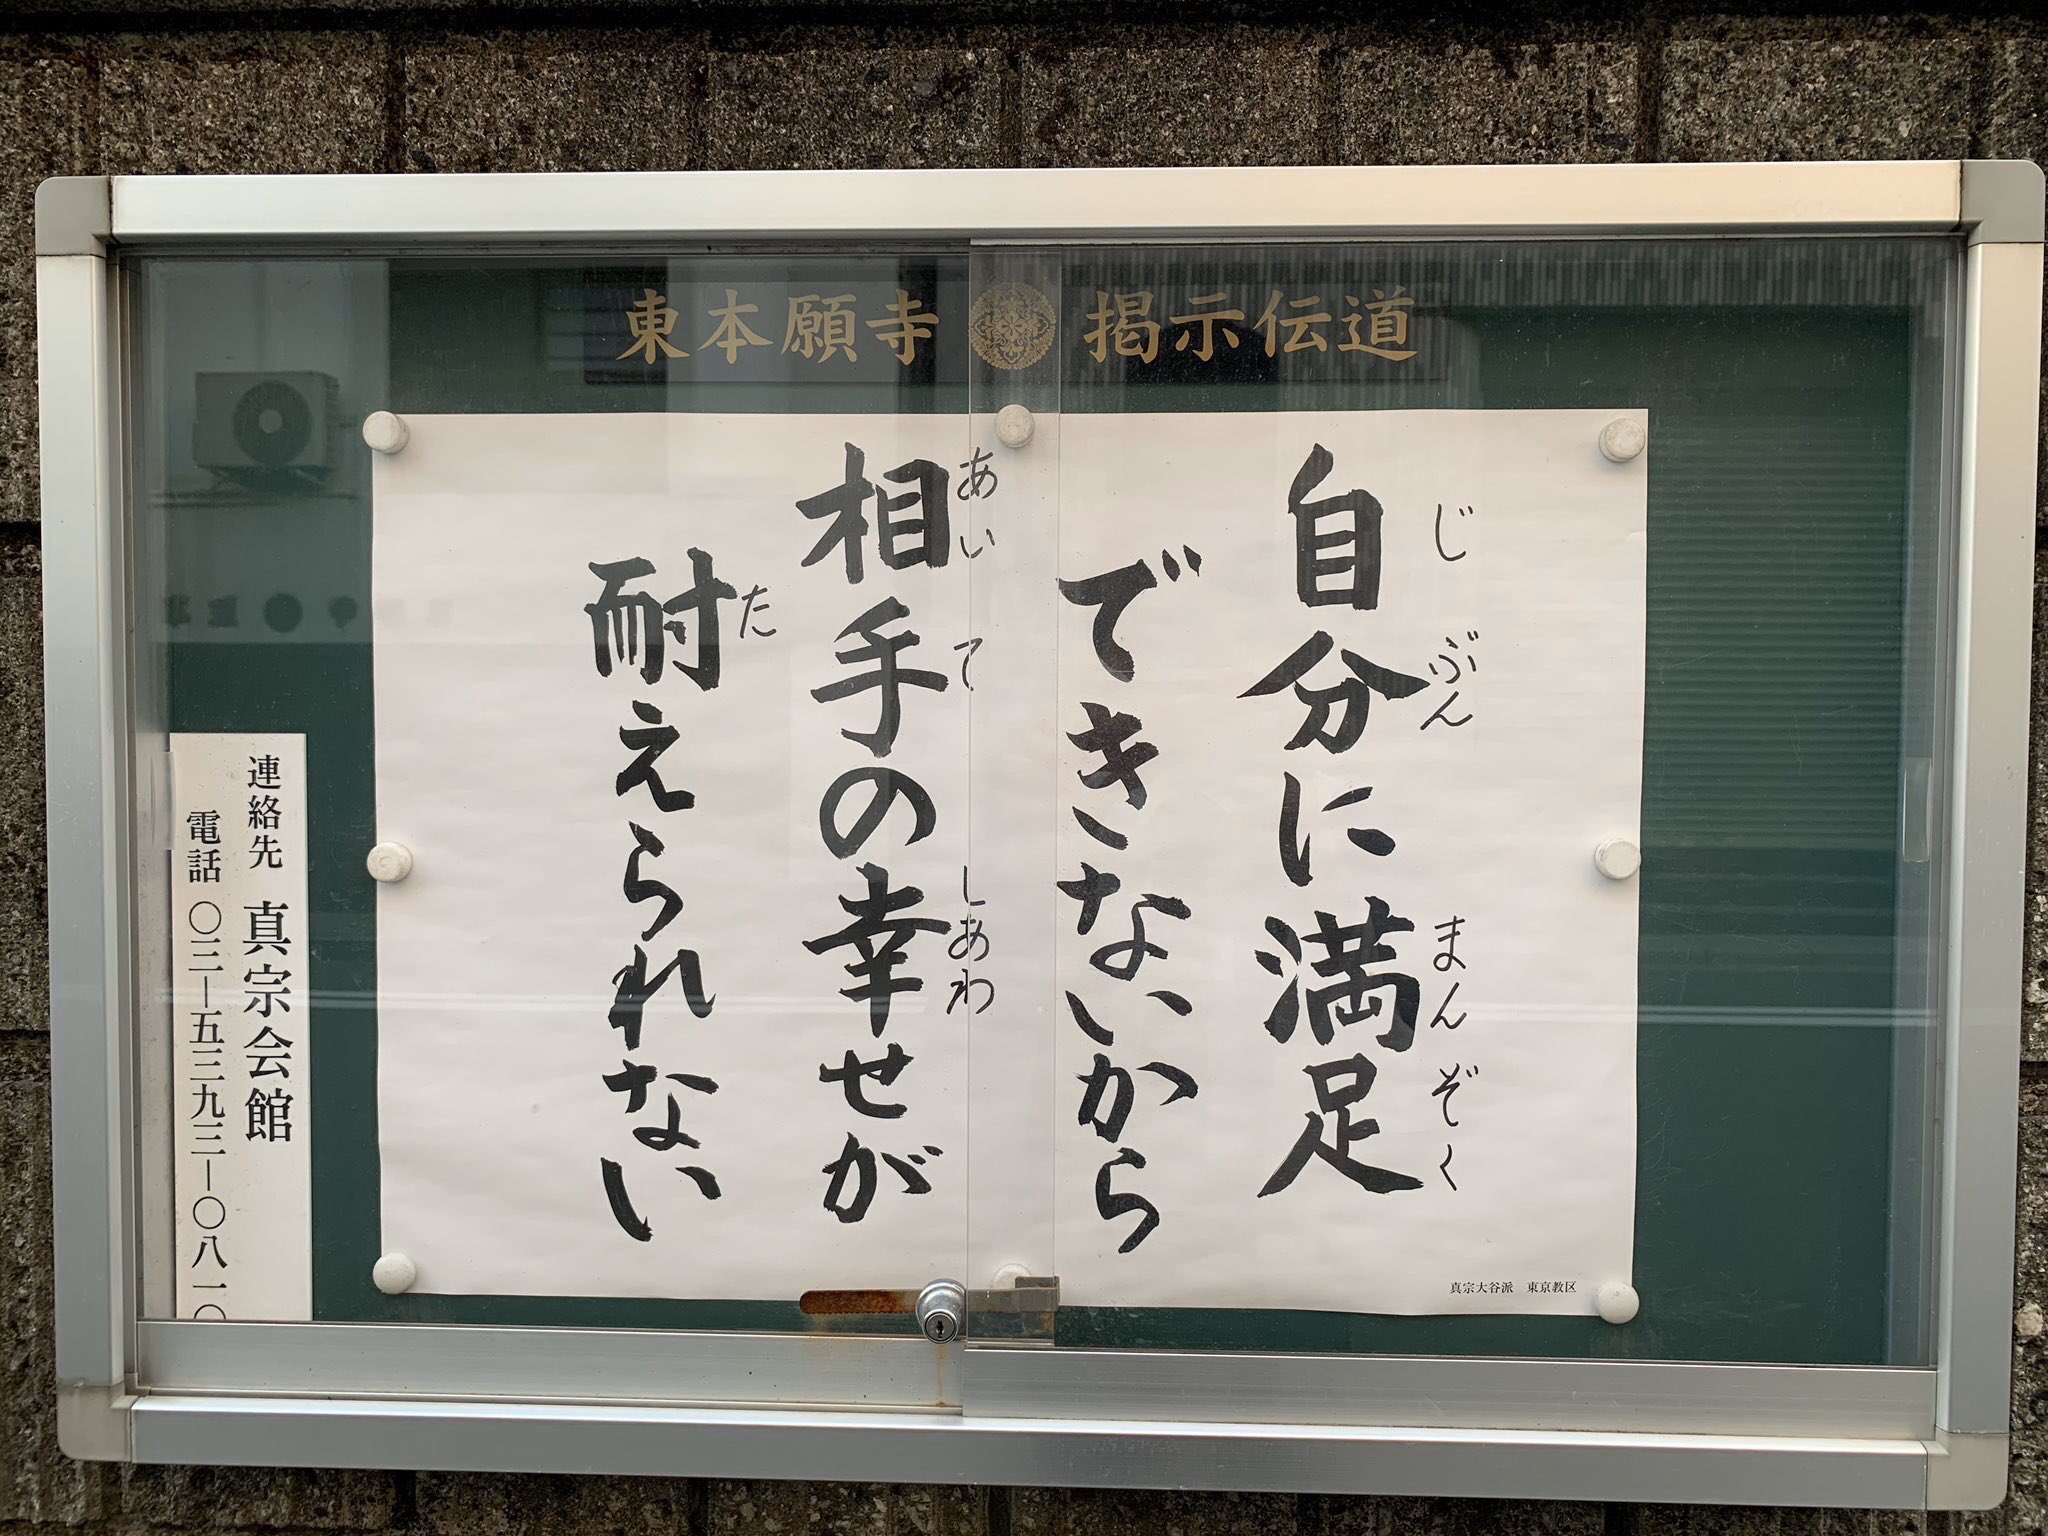 東本願寺 掲示伝道
自分に満足
じぶん まんぞく
できないから
相手の幸せが
あいて しあわ
耐えられない
た
真宗大谷派 東京教区
連絡先 真宗会館
電話 〇三–五三九三–〇八一〇